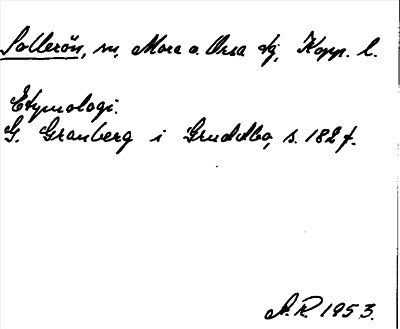 Sollerön, sn, Mora o. Orsa tg, Kopp. l.
Etymologi.
G. Granberg i Gruddbo, s. 182 f.
A.R. 1953.